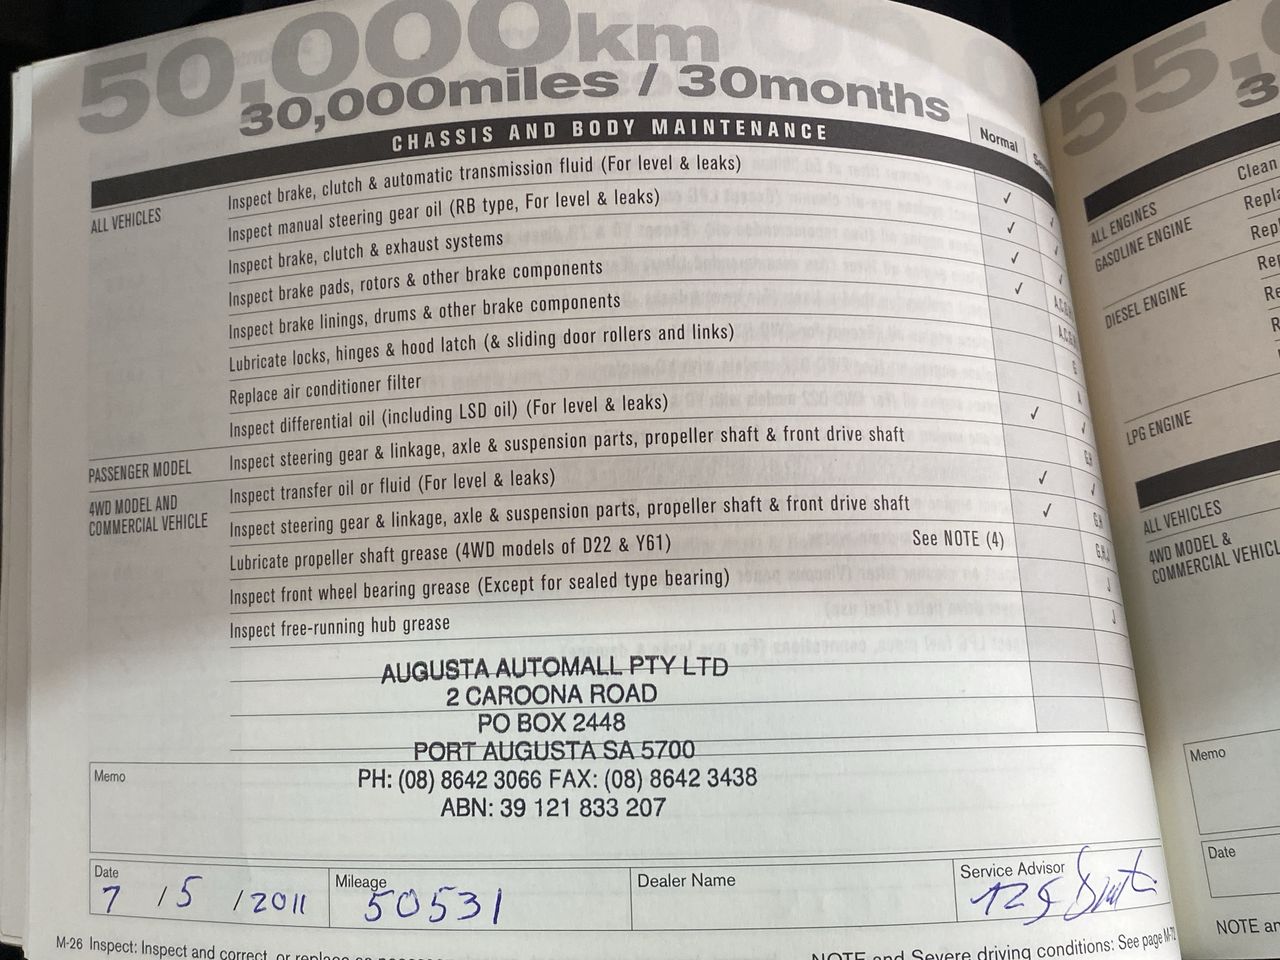 50,000km
30,000miles / 30months
CHASSIS AND BODY MAINTENANCE
Normal
ALL VEHICLES
Inspect brake, clutch & automatic transmission fluid (For level & leaks)
Inspect manual steering gear oil (RB type, For level & leaks)
Inspect brake, clutch & exhaust systems
Inspect brake pads, rotors & other brake components
Inspect brake linings, drums & other brake components
Lubricate locks, hinges & hood latch (& sliding door rollers and links)
Replace air conditioner filter
Inspect differential oil (including LSD oil) (For level & leaks)
PASSENGER MODEL
Inspect steering gear & linkage, axle & suspension parts, propeller shaft & front drive shaft
4WD MODEL AND
COMMERCIAL VEHICLE
Inspect transfer oil or fluid (For level & leaks)
Inspect steering gear & linkage, axle & suspension parts, propeller shaft & front drive shaft
Lubricate propeller shaft grease (4WD models of D22 & Y61) See NOTE (4)
Inspect front wheel bearing grease (Except for sealed type bearing)
Inspect free-running hub grease
AUGUSTA AUTOMALL PTY LTD
2 CAROONA ROAD
PO BOX 2448
PORT AUGUSTA SA 5700
PH: (08) 8642 3066 FAX: (08) 8642 3438
ABN: 39 121 833 207
Memo
Date
7 / 5 / 2011
Mileage
50531
Dealer Name
Service Advisor
M-26 Inspect: Inspect and correct or replace as
NOTE and Severe driving conditions: See page
55,
3
ALL ENGINES
GASOLINE ENGINE
DIESEL ENGINE
LPG ENGINE
Clean
ALL VEHICLES
4WD MODEL &
COMMERCIAL VEHICL
Memo
Date
NOTE an